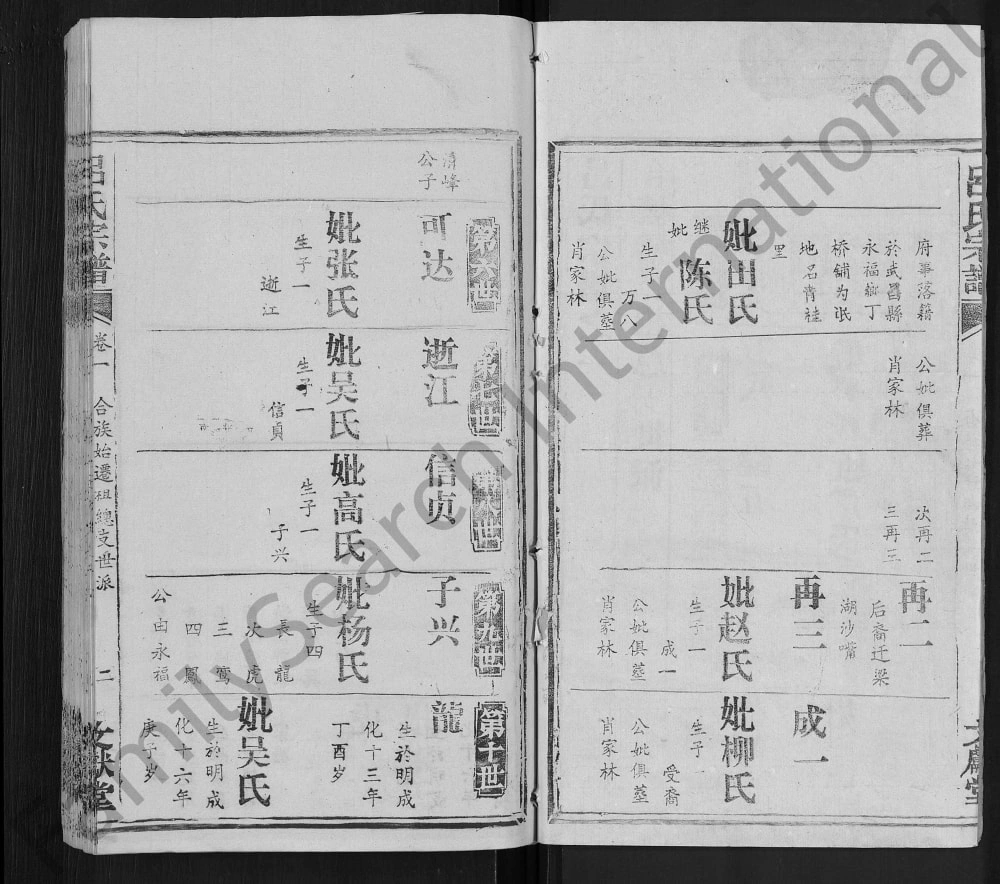 吕氏宗譜
府事落籍
於武昌縣
永福鄉丁
桥铺为氓
地名青桂
里
妣田氏
继妣
陈氏
生子一
万八
公妣俱塟
肖家林
公妣俱葬
肖家林
次再二
三再三
再二
后裔迁梁
湖沙嘴
再三
妣赵氏
生子一
成一
公妣俱塟
肖家林
成一
妣柳氏
生子一
受裔
公妣俱塟
肖家林
文献堂
清峰
公子
第六世
可达
妣张氏
生子一
逝江
第七世
逝江
妣吴氏
生子一
信貞
第八世
信贞
妣高氏
生子一
于兴
第九世
子兴
妣杨氏
生子四
長龍
次虎
三鸾
四鳳
公由永福
第十世
龍
生於明成
化十三年
丁酉岁
妣吴氏
生於明成
化十六年
庚子岁
吕氏宗譜
卷一
合族始遷祖總支世派
二
文献堂
FamilySearch International